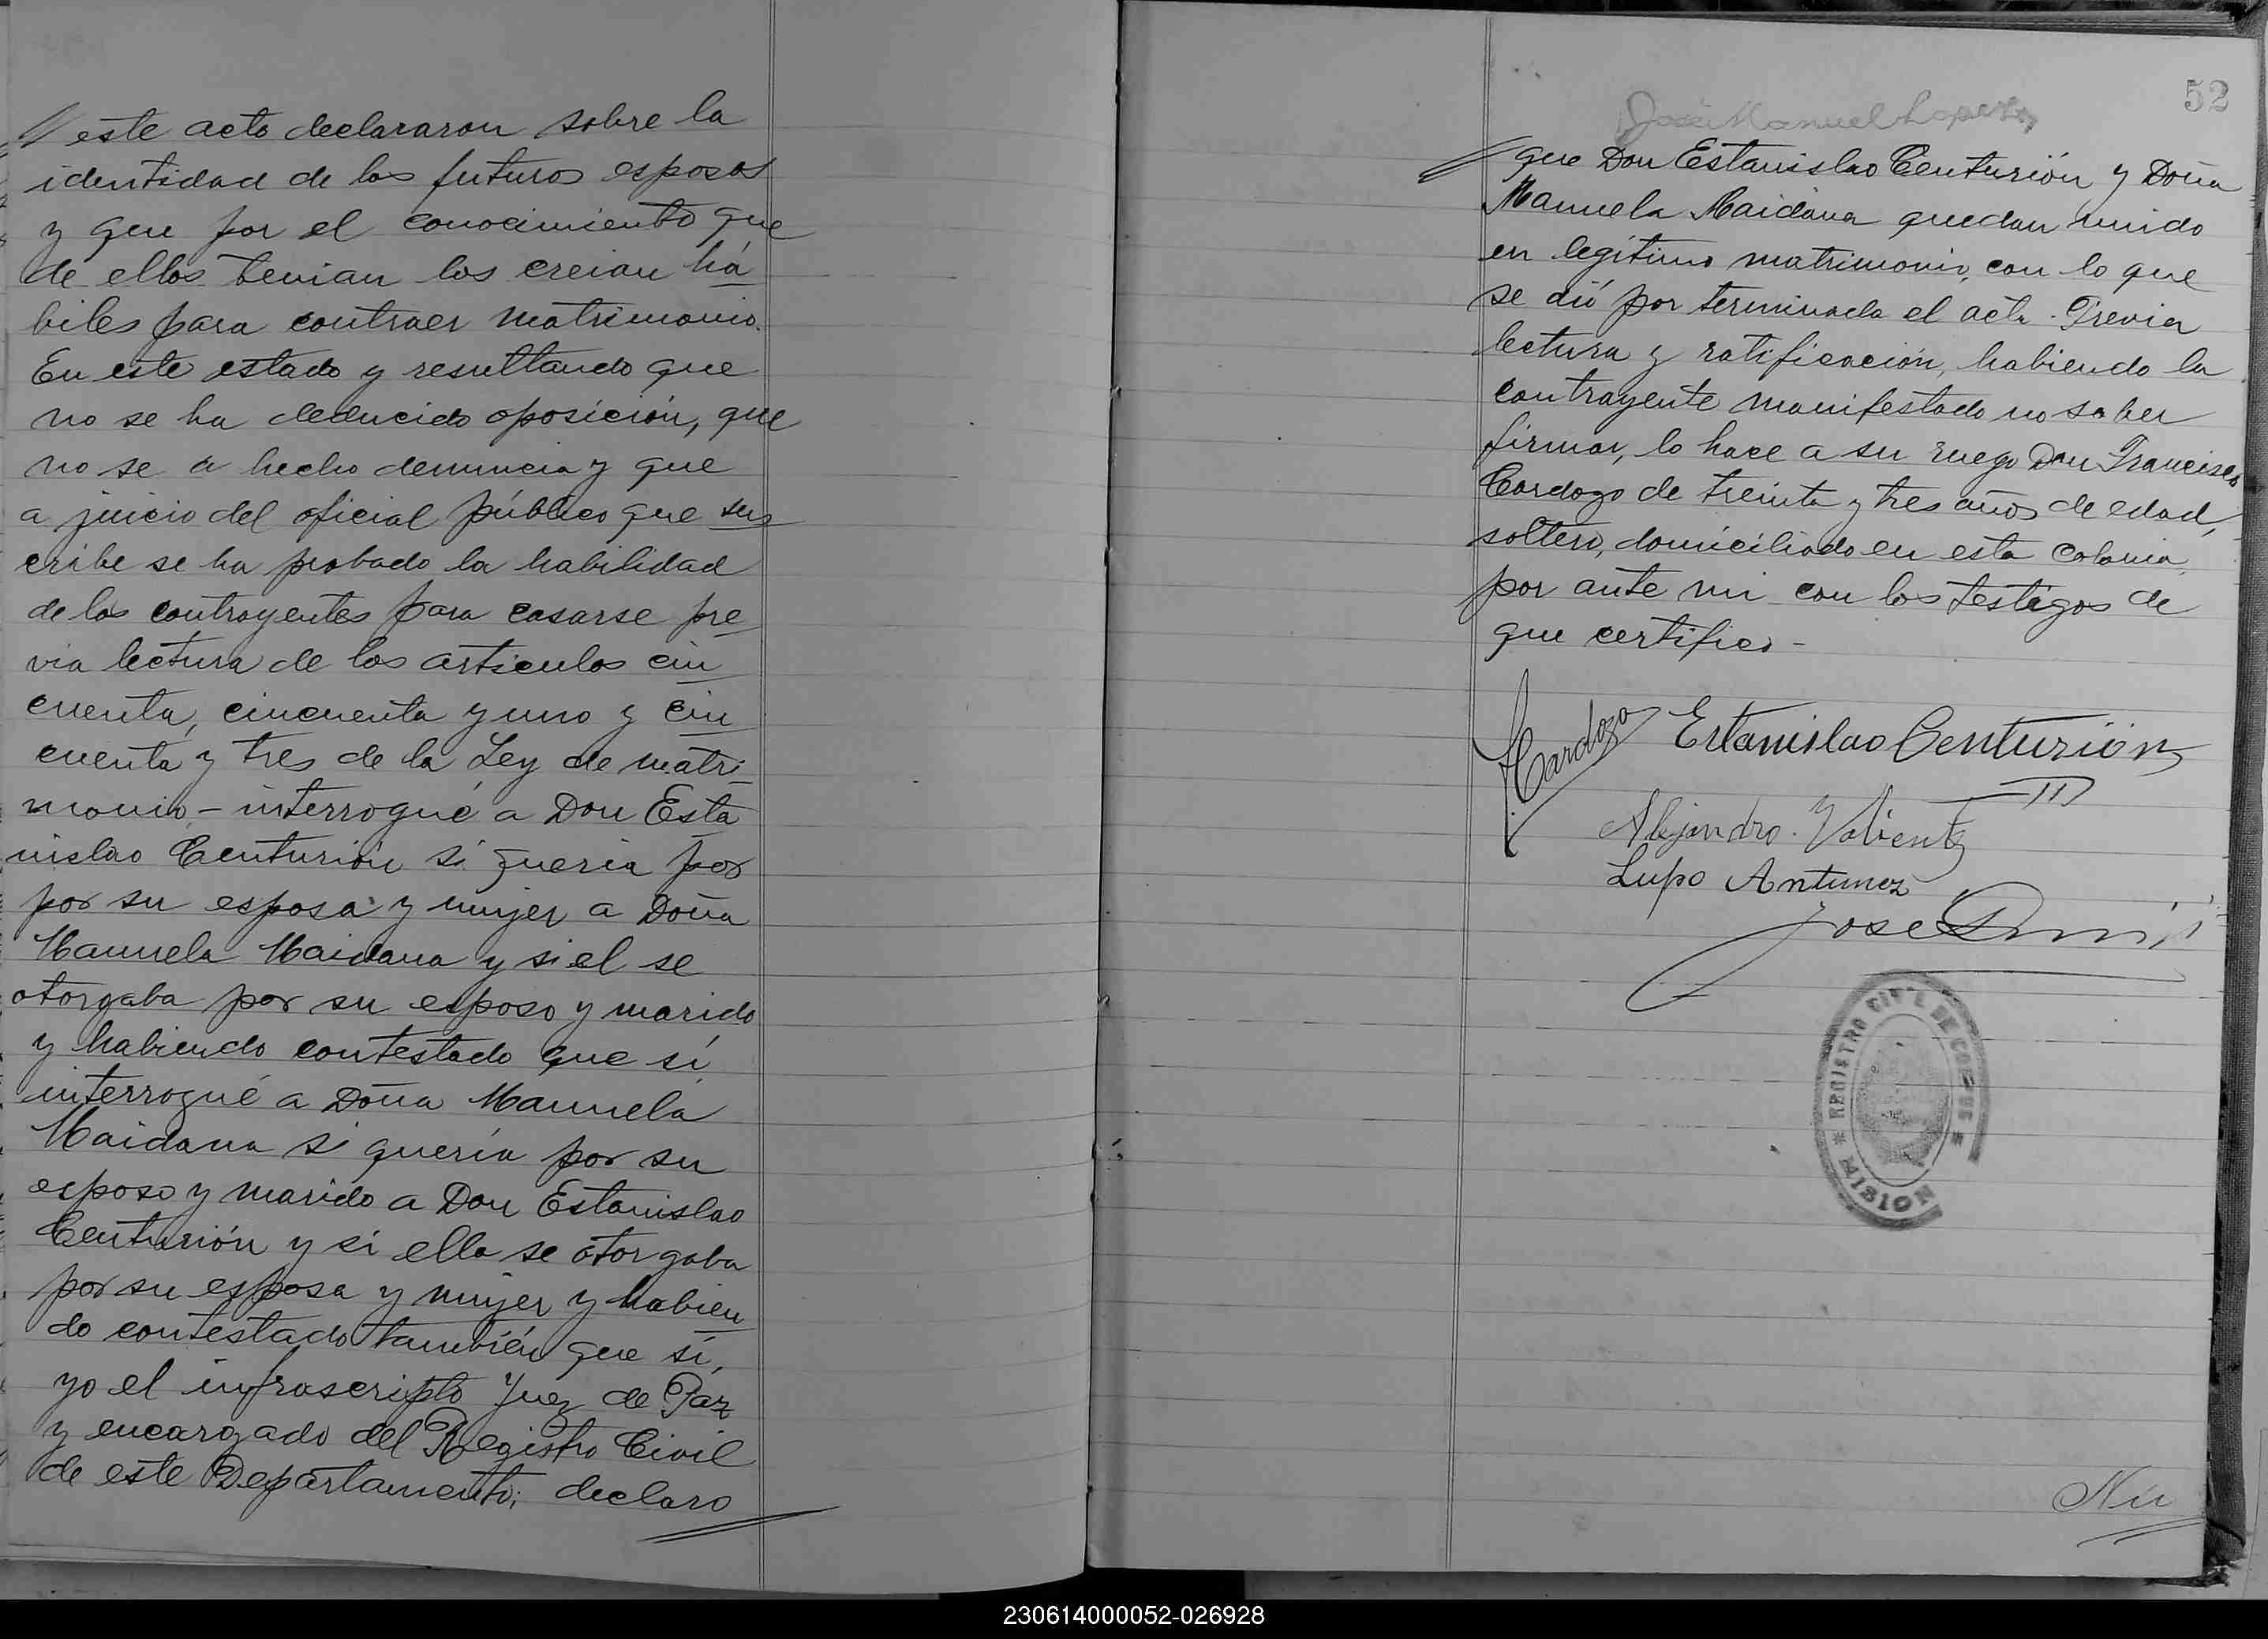 este acto declararon sobre la
identidad de los futuros esposos
y que por el conocimiento que
de ellos tenian los creian há
biles para contraer matrimonio.
En este estado y resultando que
no se ha deducido oposición, que
no se a hecho denuncia y que
a juicio del oficial público que sus
cribe se ha probado la habilidad
de los contrayentes para casarse pre
via lectura de los articulos cin
cuenta, cincuenta y uno y cin
cuenta y tres de la Ley de matri
monio - interrogué a Don Esta
nislao Centurión si queria por
por su esposa y mujer a Doña
Manuela Maidana y si el se
otorgaba por su esposo y marido
y habiendo contestado que sí
interrogué a Doña Manuela
Maidana si quería por su
esposo y marido a Don Estanislao
Centurión y si ella se otorgaba
por su esposa y mujer y habien
do contestado también que sí,
yo el infrascripto Juez de Paz
y encargado del Registro Civil
de este Departamento; declaro
52
José Manuel Lopez
que Don Estanislao Centurión y Doña
Manuela Maidana quedan unido
en legítimo matrimonio, con lo que
se dió por terminada el acta. Previa
lectura y ratificación, habiendo la
contrayente manifestado no saber
firmar, lo hace a su ruego Don Francisco
Cardozo de treinta y tres años de edad,
soltero, domiciliado en esta colonia
por ante mi con los testigos de
que certifico -
Cardozo Estanislao Centurión
Alejandro Valiente
Lupo Antunez
Jose
REGISTRO CIVIL DE
MISION
Nú
230614000052-026928